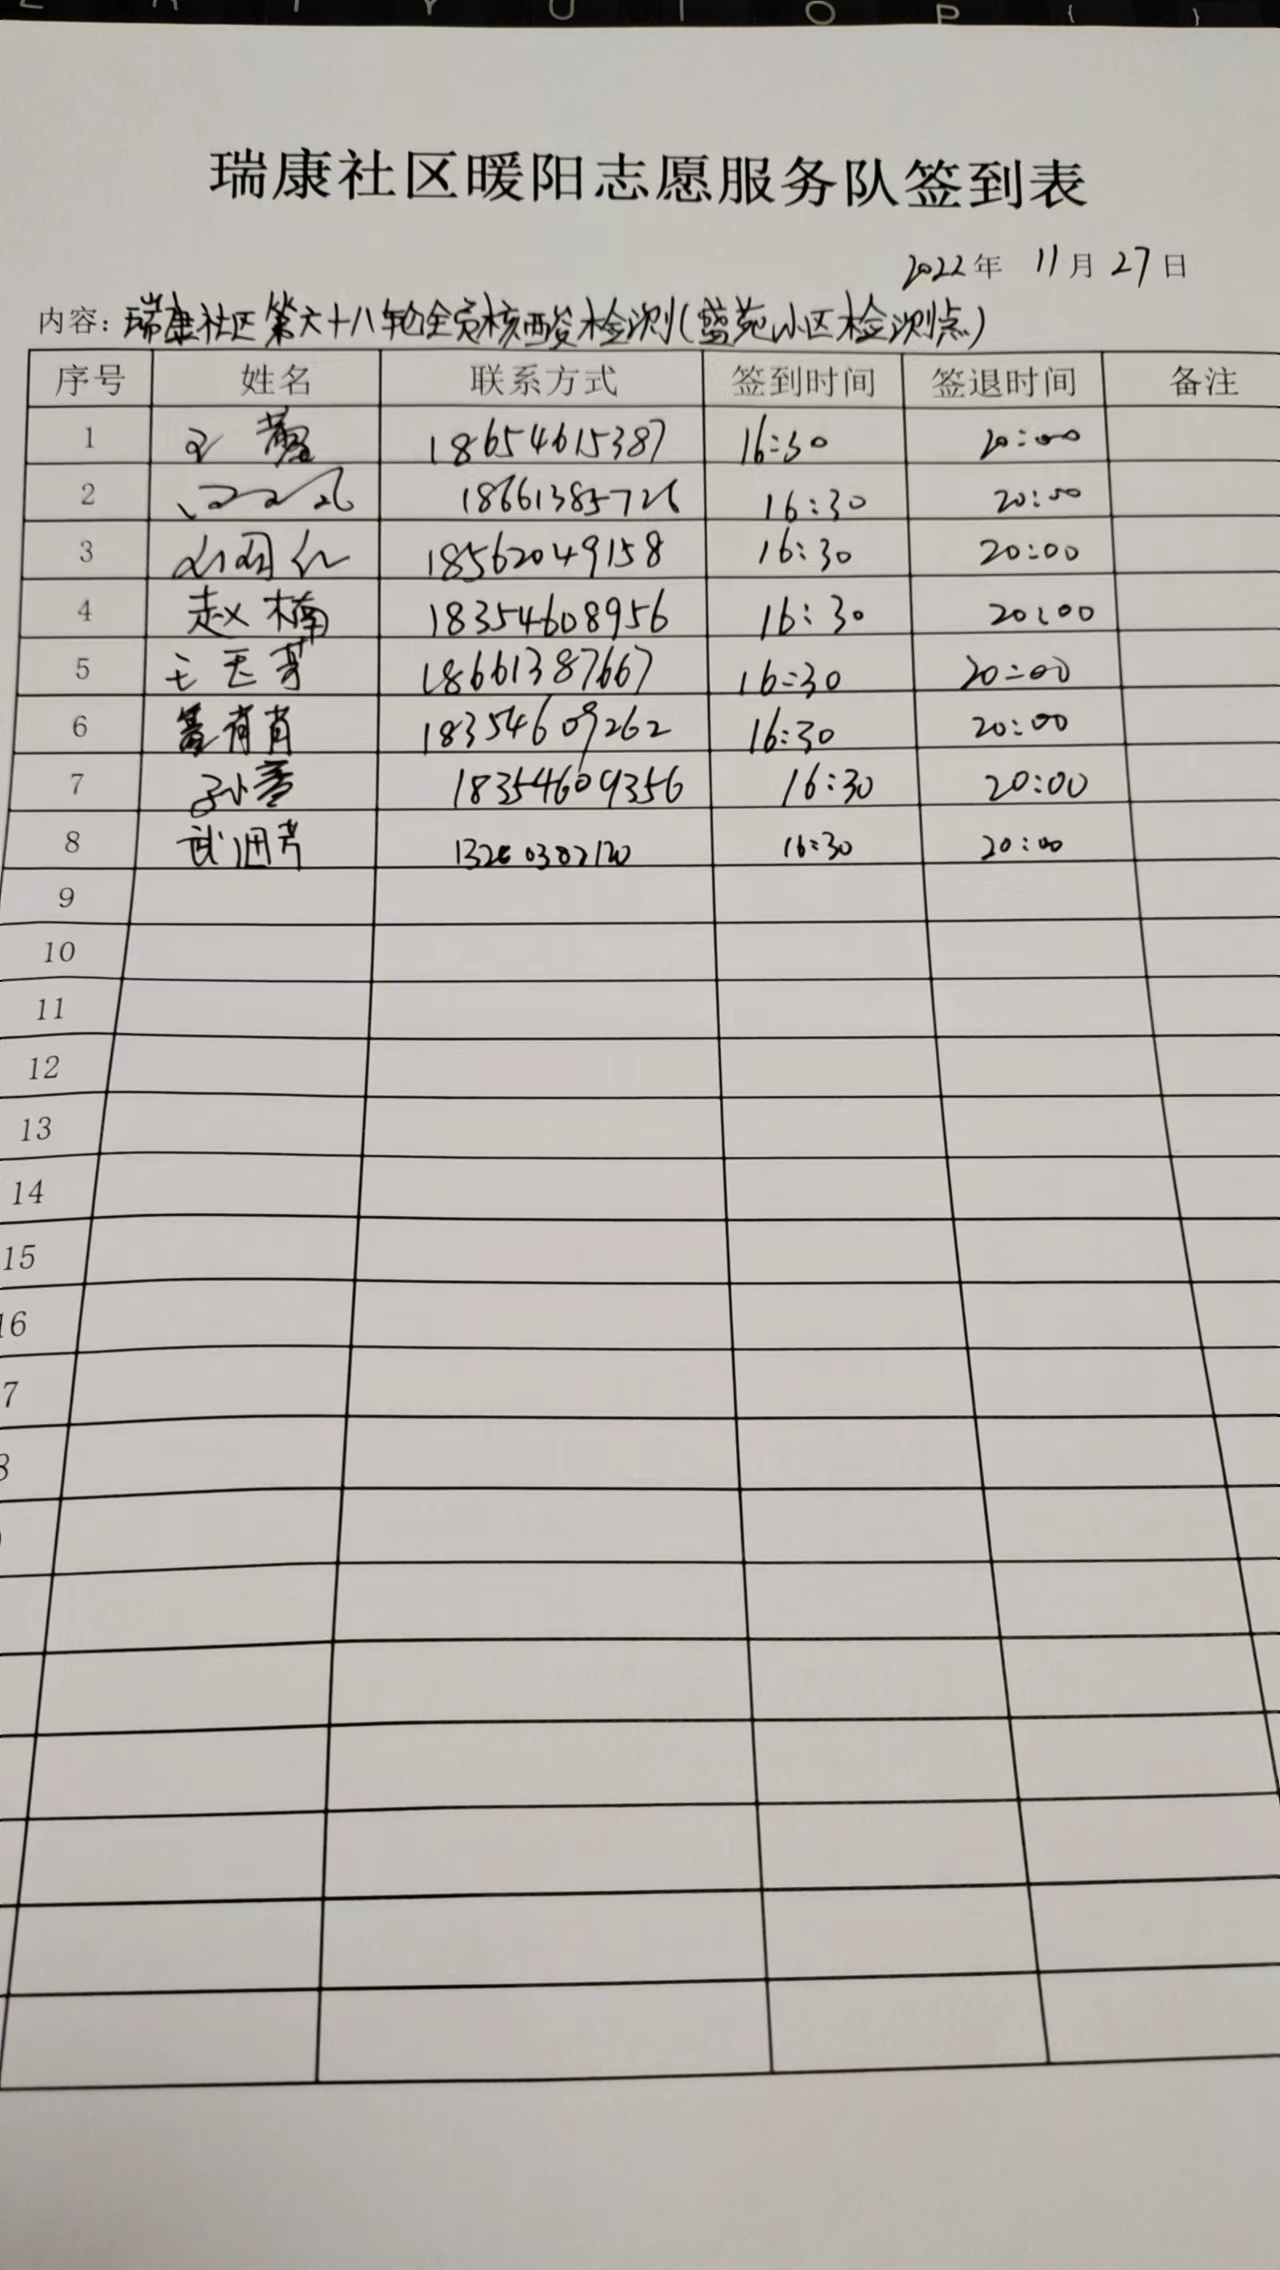 瑞康社区暖阳志愿服务队签到表
2022年 11月27日
内容：瑞康社区第六十八轮全员核酸检测(蓝苑小区检测点)
序号 姓名 联系方式 签到时间 签退时间 备注
1 王 18654615387 16:30 20:00
2 18661385726 16:30 20:00
3 18562049158 16:30 20:00
4 赵楠 18354608956 16:30 20:00
5 王玉芳 18661387667 16:30 20:00
6 肖肖 18354609262 16:30 20:00
7 孙 18354609356 16:30 20:00
8 武 16:30 20:00
9
10
11
12
13
14
15
16
7
8